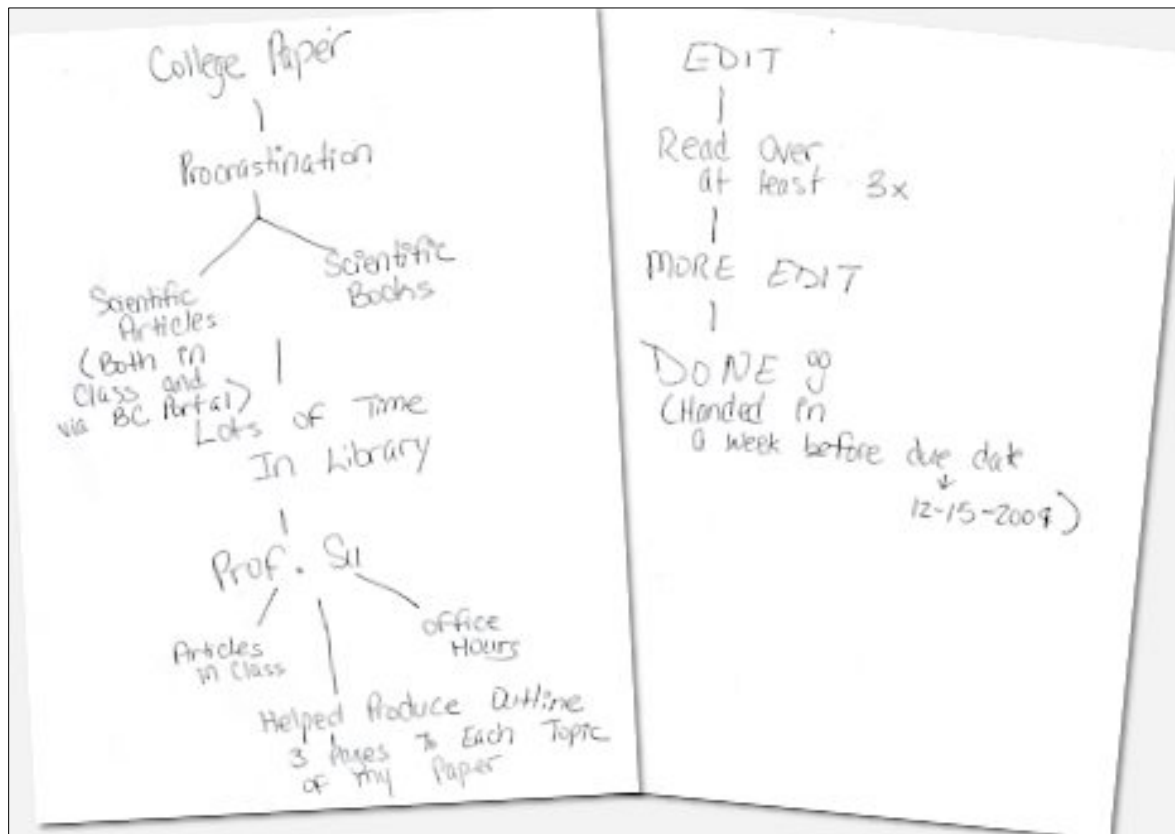 College Paper
Procrastination
Scientific
Articles
(Both in
Class and
via BC Portal)
Scientific
Books
Lots of Time
In Library
Prof. Su
Articles
in Class
Helped Produce Outline
3 Pages To Each Topic
of my Paper
office
Hours
EDIT
Read Over
at least 3x
MORE EDIT
DONE
(Handed in
a week before due date
12-15-2009)